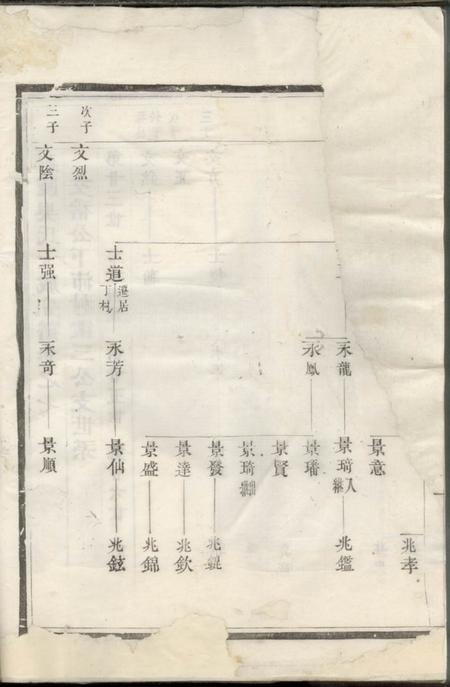 景意
兆孝
永龍
景琦入繼
兆鑑
永鳳
景璠
景賢
景琦
景發
兆錕
景達
兆欽
景盛
兆錦
士道遷居丁村
永芳
景仙
兆鉉
次子
文烈
三子
文陰
士强
永奇
景順